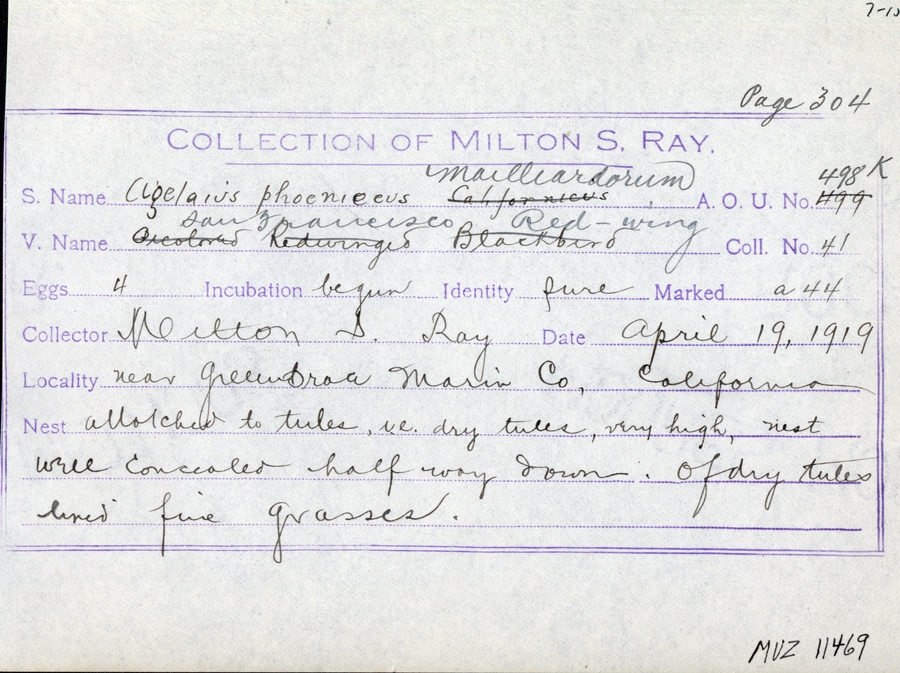 7-1
Page 304
COLLECTION OF MILTON S. RAY.
mailliardorum 498 K
S. Name Agelaius phoeniceus Californicus A. O. U. No. 499
San Francisco Red-wing
V. Name Bicolored Redwinged Blackbird Coll. No. 41
Eggs 4 Incubation begun Identity sure Marked a 44
Collector Milton S. Ray Date April 19, 1919
Locality near Greenbrae Marin Co, California
Nest attatched to tules, i.e. dry tules, very high, nest
well concealed half way down. Of dry tules
lined fine grasses.
MVZ 11469